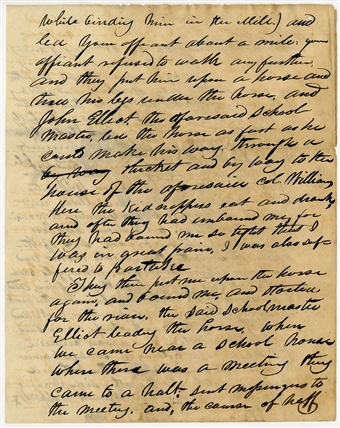 while binding him in the Mill.) and
led your affiant about a mile; your
affiant refused to walk any further
and they put him upon a horse and
tied his legs under the horse, and
John Elliot the aforesaid School
Master, led the horse as fast as he
could make his way through a
thicket and by way to the
house of the aforesaid col. William,
Here the Kidnappers eat and drank,
and after they had unbound me, for
they had bound me so tight that I
was in great pain, I was also suf-
fered to partake
They then put me upon the horse
again, and bound me, and started
for the river, the said Schoolmaster
Elliot leading the horse, when
we came near a School house
where there was a meeting they
came to a halt; sent messengers to
the meeting, and, the cause of